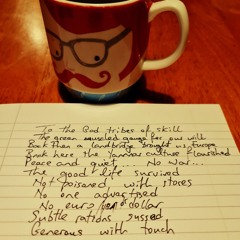 To the God tribes of skill
The green muscled gauge for our will
Back then a landbridge brought us Europe
Back here the Jannar culture flourished
Peace and quiet.... No war...
The good life survived
Not poisoned with stores
No one advertised
No euro/yen or dollar
Subtle rations sussed
Generous with touch